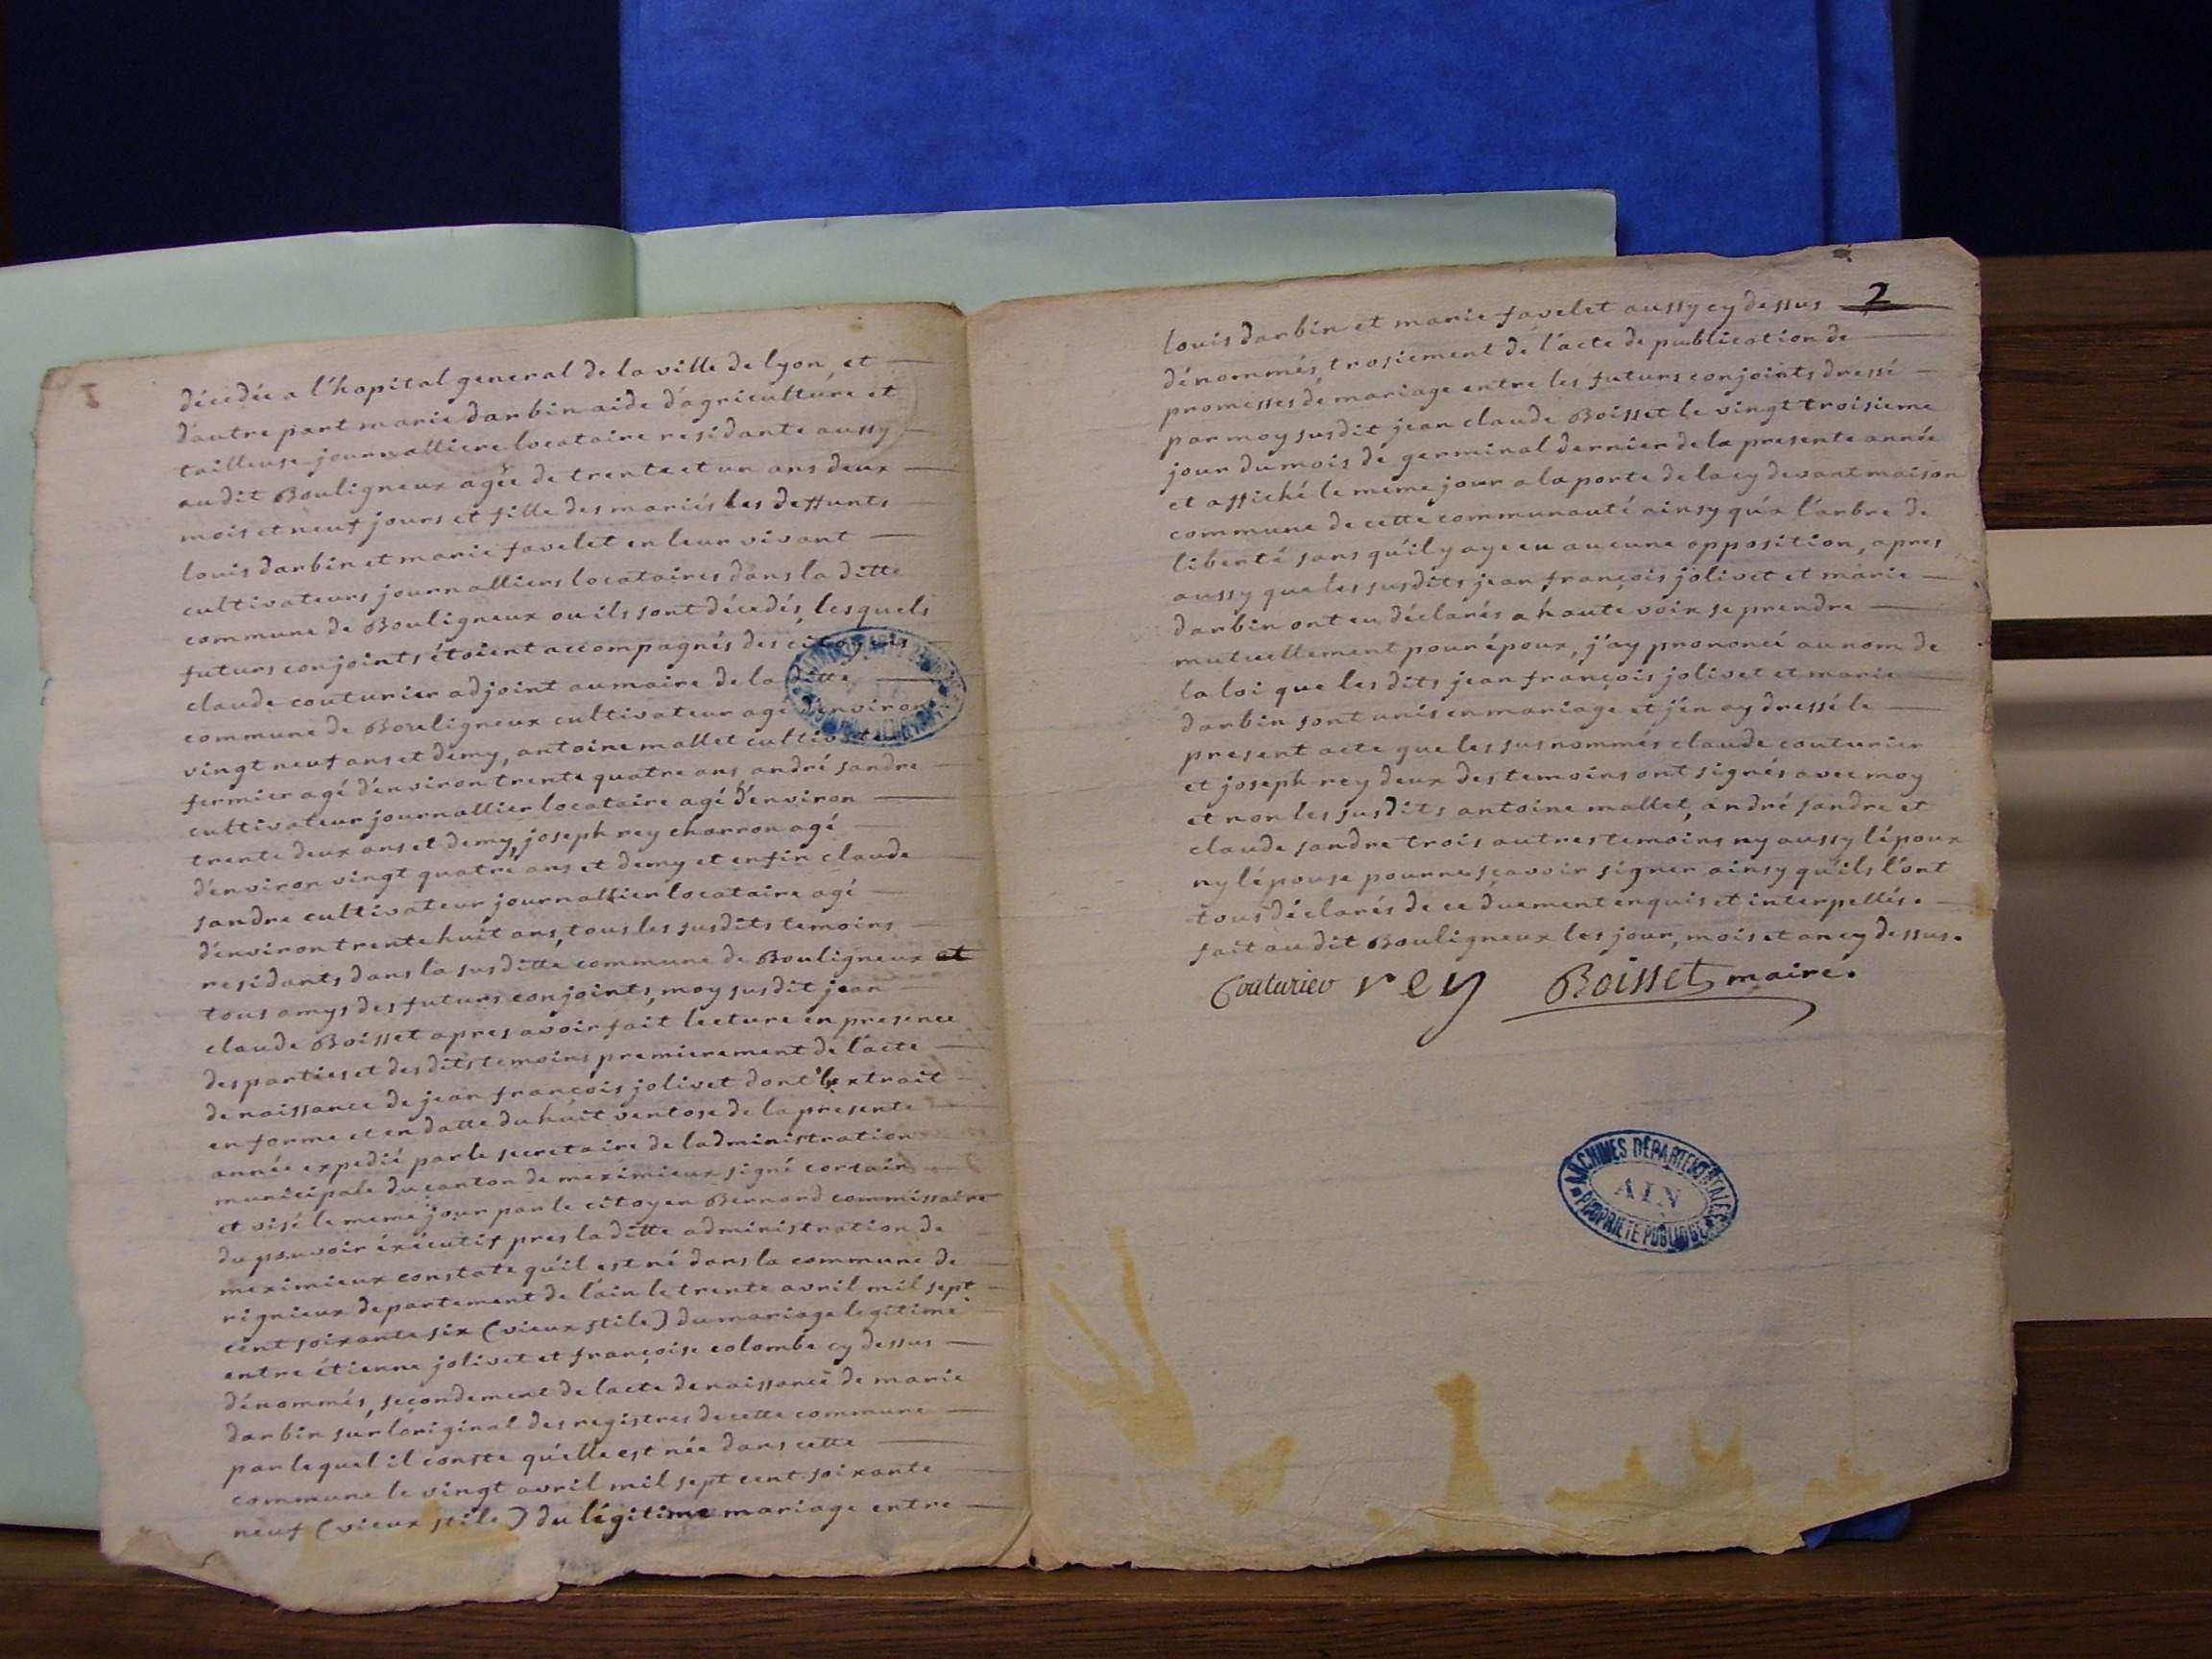 décédée a l'hopital general de la ville de lyon, et
d'autre part marie darbin aide d'agriculture et
tailleuse journalliere locataire residante aussy
audit Bouligneux agée de trente et un ans deux
mois et neuf jours et fille des mariés les deffunts
louis darbin et marie favelet en leur vivant
cultivateurs journalliers locataires dans la ditte
commune de Bouligneux ou ils sont décedés, lesquels
futurs conjoints étoient accompagnés des citoyens
claude couturier adjoint au maire de la ditte
commune de Bouligneux cultivateur agé d'environ
vingt neuf ans et demy, antoine mallet cultivateur
fermier agé d'environ trente quatre ans, andré sandre
cultivateur journallier locataire agé d'environ
trente deux ans et demy, joseph rey charron agé
d'environ vingt quatre ans et demy et enfin claude
sandre cultivateur journallier locataire agé
d'environ trente huit ans, tous les susdits temoins
residants dans la susditte commune de Bouligneux et
tous amys des futurs conjoints, moy susdit jean
claude Boisset apres avoir fait lecture en presence
des parties et des dits temoins premierement de l'acte
de naissance de jean françois jolivet dont l'extrait
en forme et en datte du huit ventose de la presente
année expedié par le secretaire de ladministration
municipale du canton de meximieux signé
et visé le meme jour par le citoyen Bernard commissaire
du pouvoir éxécutif pres la ditte administration de
meximieux constate qu'il est né dans la commune de
rignieux departement de l'ain le trente avril mil sept
cent soixante six (vieux stile) du mariage legitime
entre étienne jolivet et françoise colombe cy dessus
dénommés, secondement de lacte de naissance de marie
darbin sur loriginal des registres de cette commune
par lequel il conste qu'elle est née dans cette
commune le vingt avril mil sept cent soixante
neuf (vieux stile) du légitime mariage entre
2
louis darbin et marie favelet aussy cy dessus
dénommés, trosiement de l'acte de publication de
promesses de mariage entre les futurs conjoints dressé
par moy susdit jean claude Boisset le vingt troisieme
jour du mois de germinal dernier de la presente année
et affiché le meme jour a la porte de la cy devant maison
commune de cette communauté ainsy qu'a l'arbre de
liberté sans qu'il y aye eu aucune opposition, apres
aussy que les susdits jean françois jolivet et marie
darbin ont eu déclarés a haute voix se prendre
mutuellement pour époux, j'ay prononcé au nom de
la loi que les dits jean françois jolivet et marie
darbin sont unis en mariage et j'en ay dressé le
present acte que les susnommés claude couturier
et joseph rey deux des temoins ont signés avec moy
et non les susdits antoine mallet, andré sandre et
claude sandre trois autres temoins ny aussy l'époux
ny l'épouse pour ne sçavoir signer ainsy qu'ils l'ont
tous déclarés de ce duement enquis et interpellés.
fait audit Bouligneux les jour, mois et an cy dessus.
Couturier rey Boisset maire.
ARCHIVES DÉPARTEMENTALES
AIN
PROPRIÉTÉ PUBLIQUE